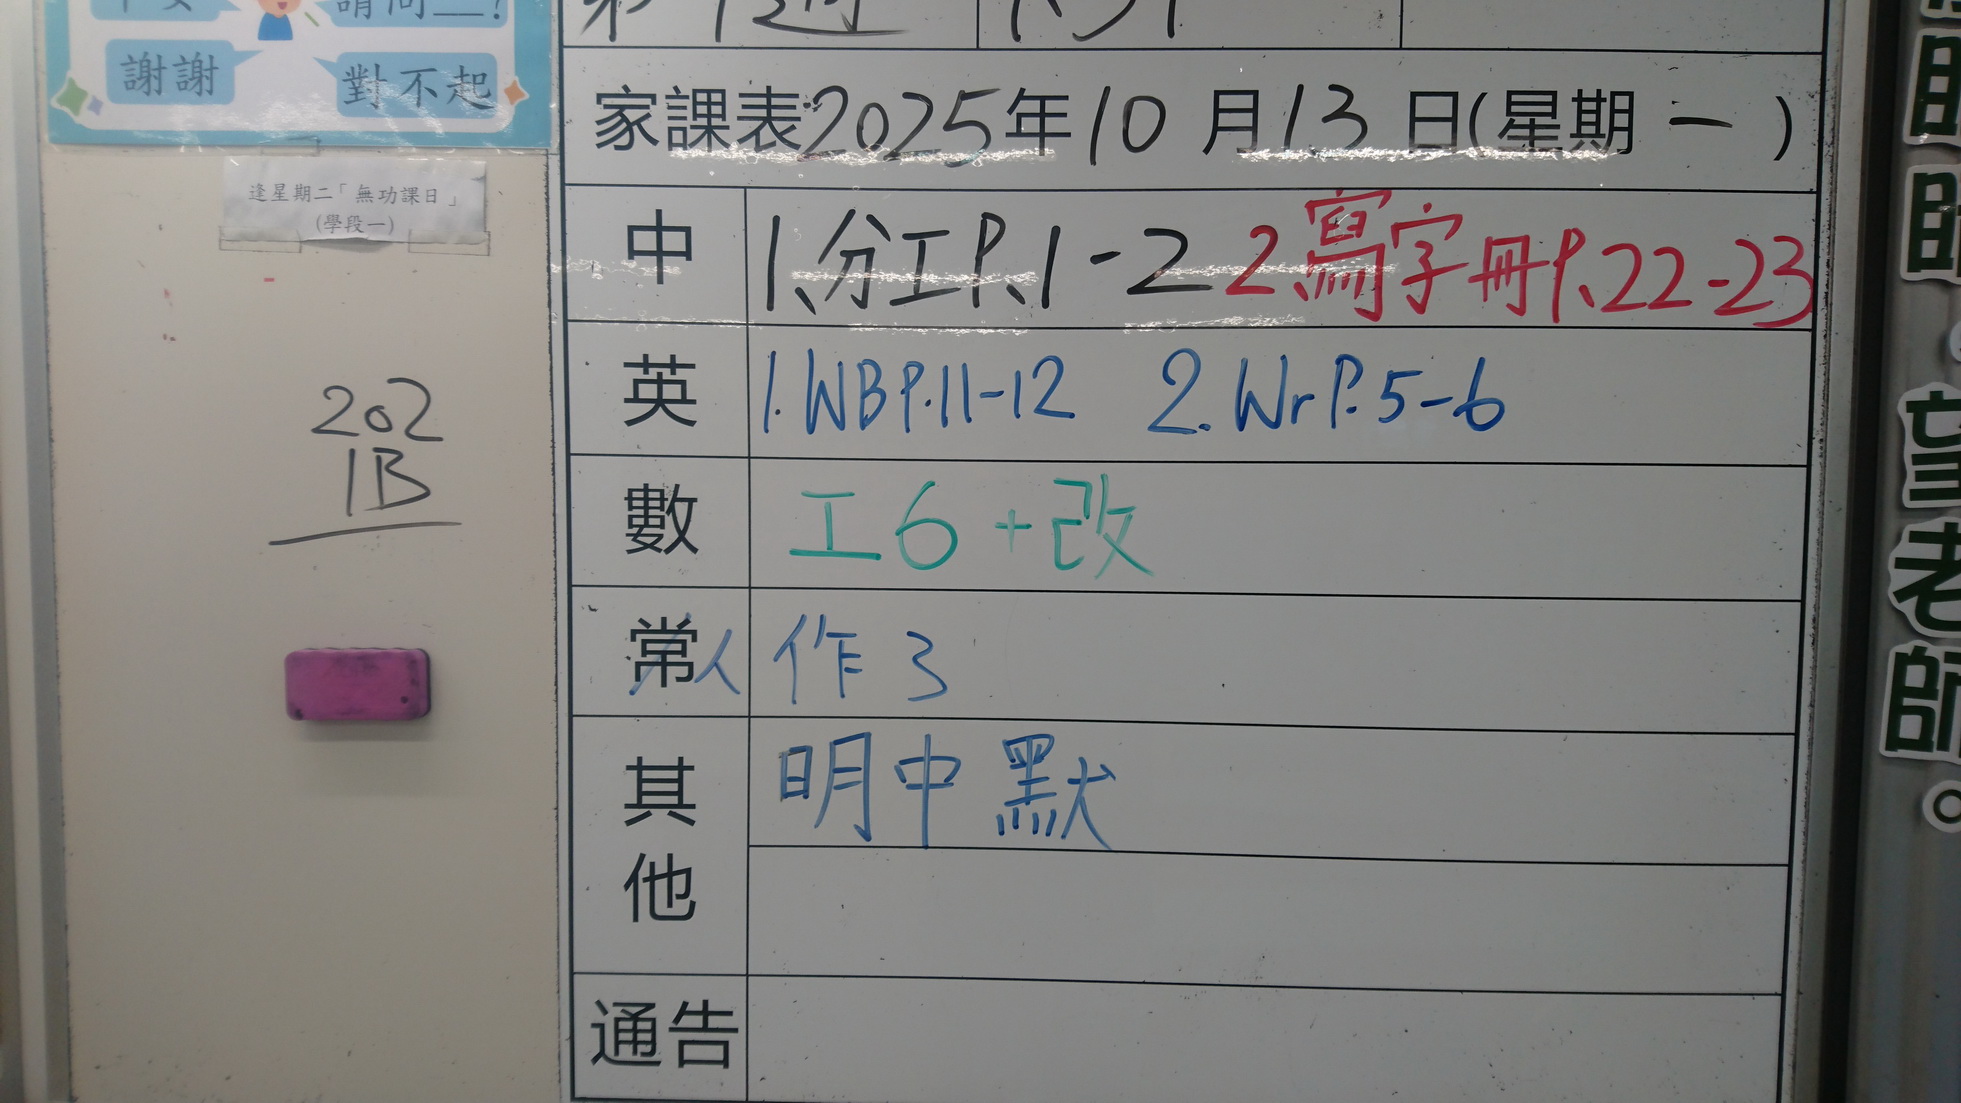 請問__?
謝謝
對不起
逢星期二「無功課日」
(學段一)
202
1B
家課表2025年10月13日(星期一)
中 1.分工P.1-2 2.寫字冊P.22-23
英 1.WBP.11-12 2.WrP.5-6
數 工6+改
常人 作3
其他 明中默
通告
望老師。